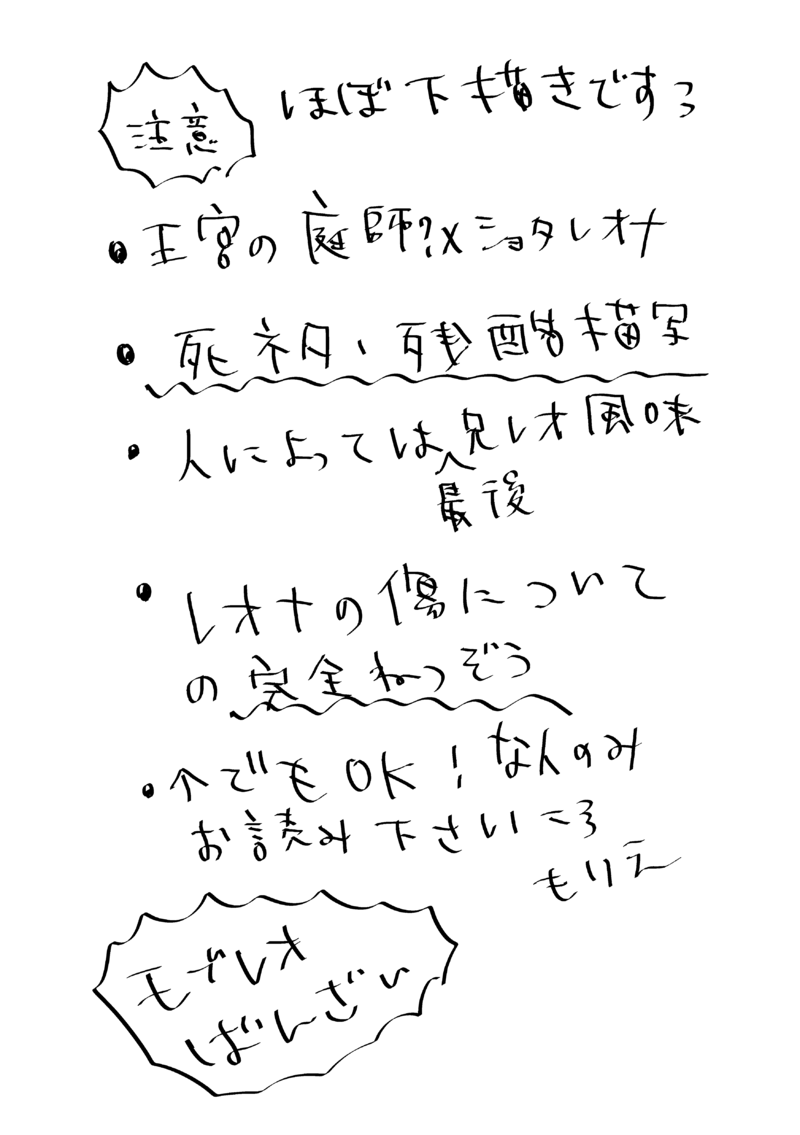 注意 ほぼ下描きです3
・王宮の庭師?×ショタレオナ
・死ネタ、残酷描写
・人によっては最後兄レオ風味
・レオナの傷について
の完全ねつぞう
・↑でもOK!な人のみ
お読み下さい
もりえ
モブレオ
ばんざい